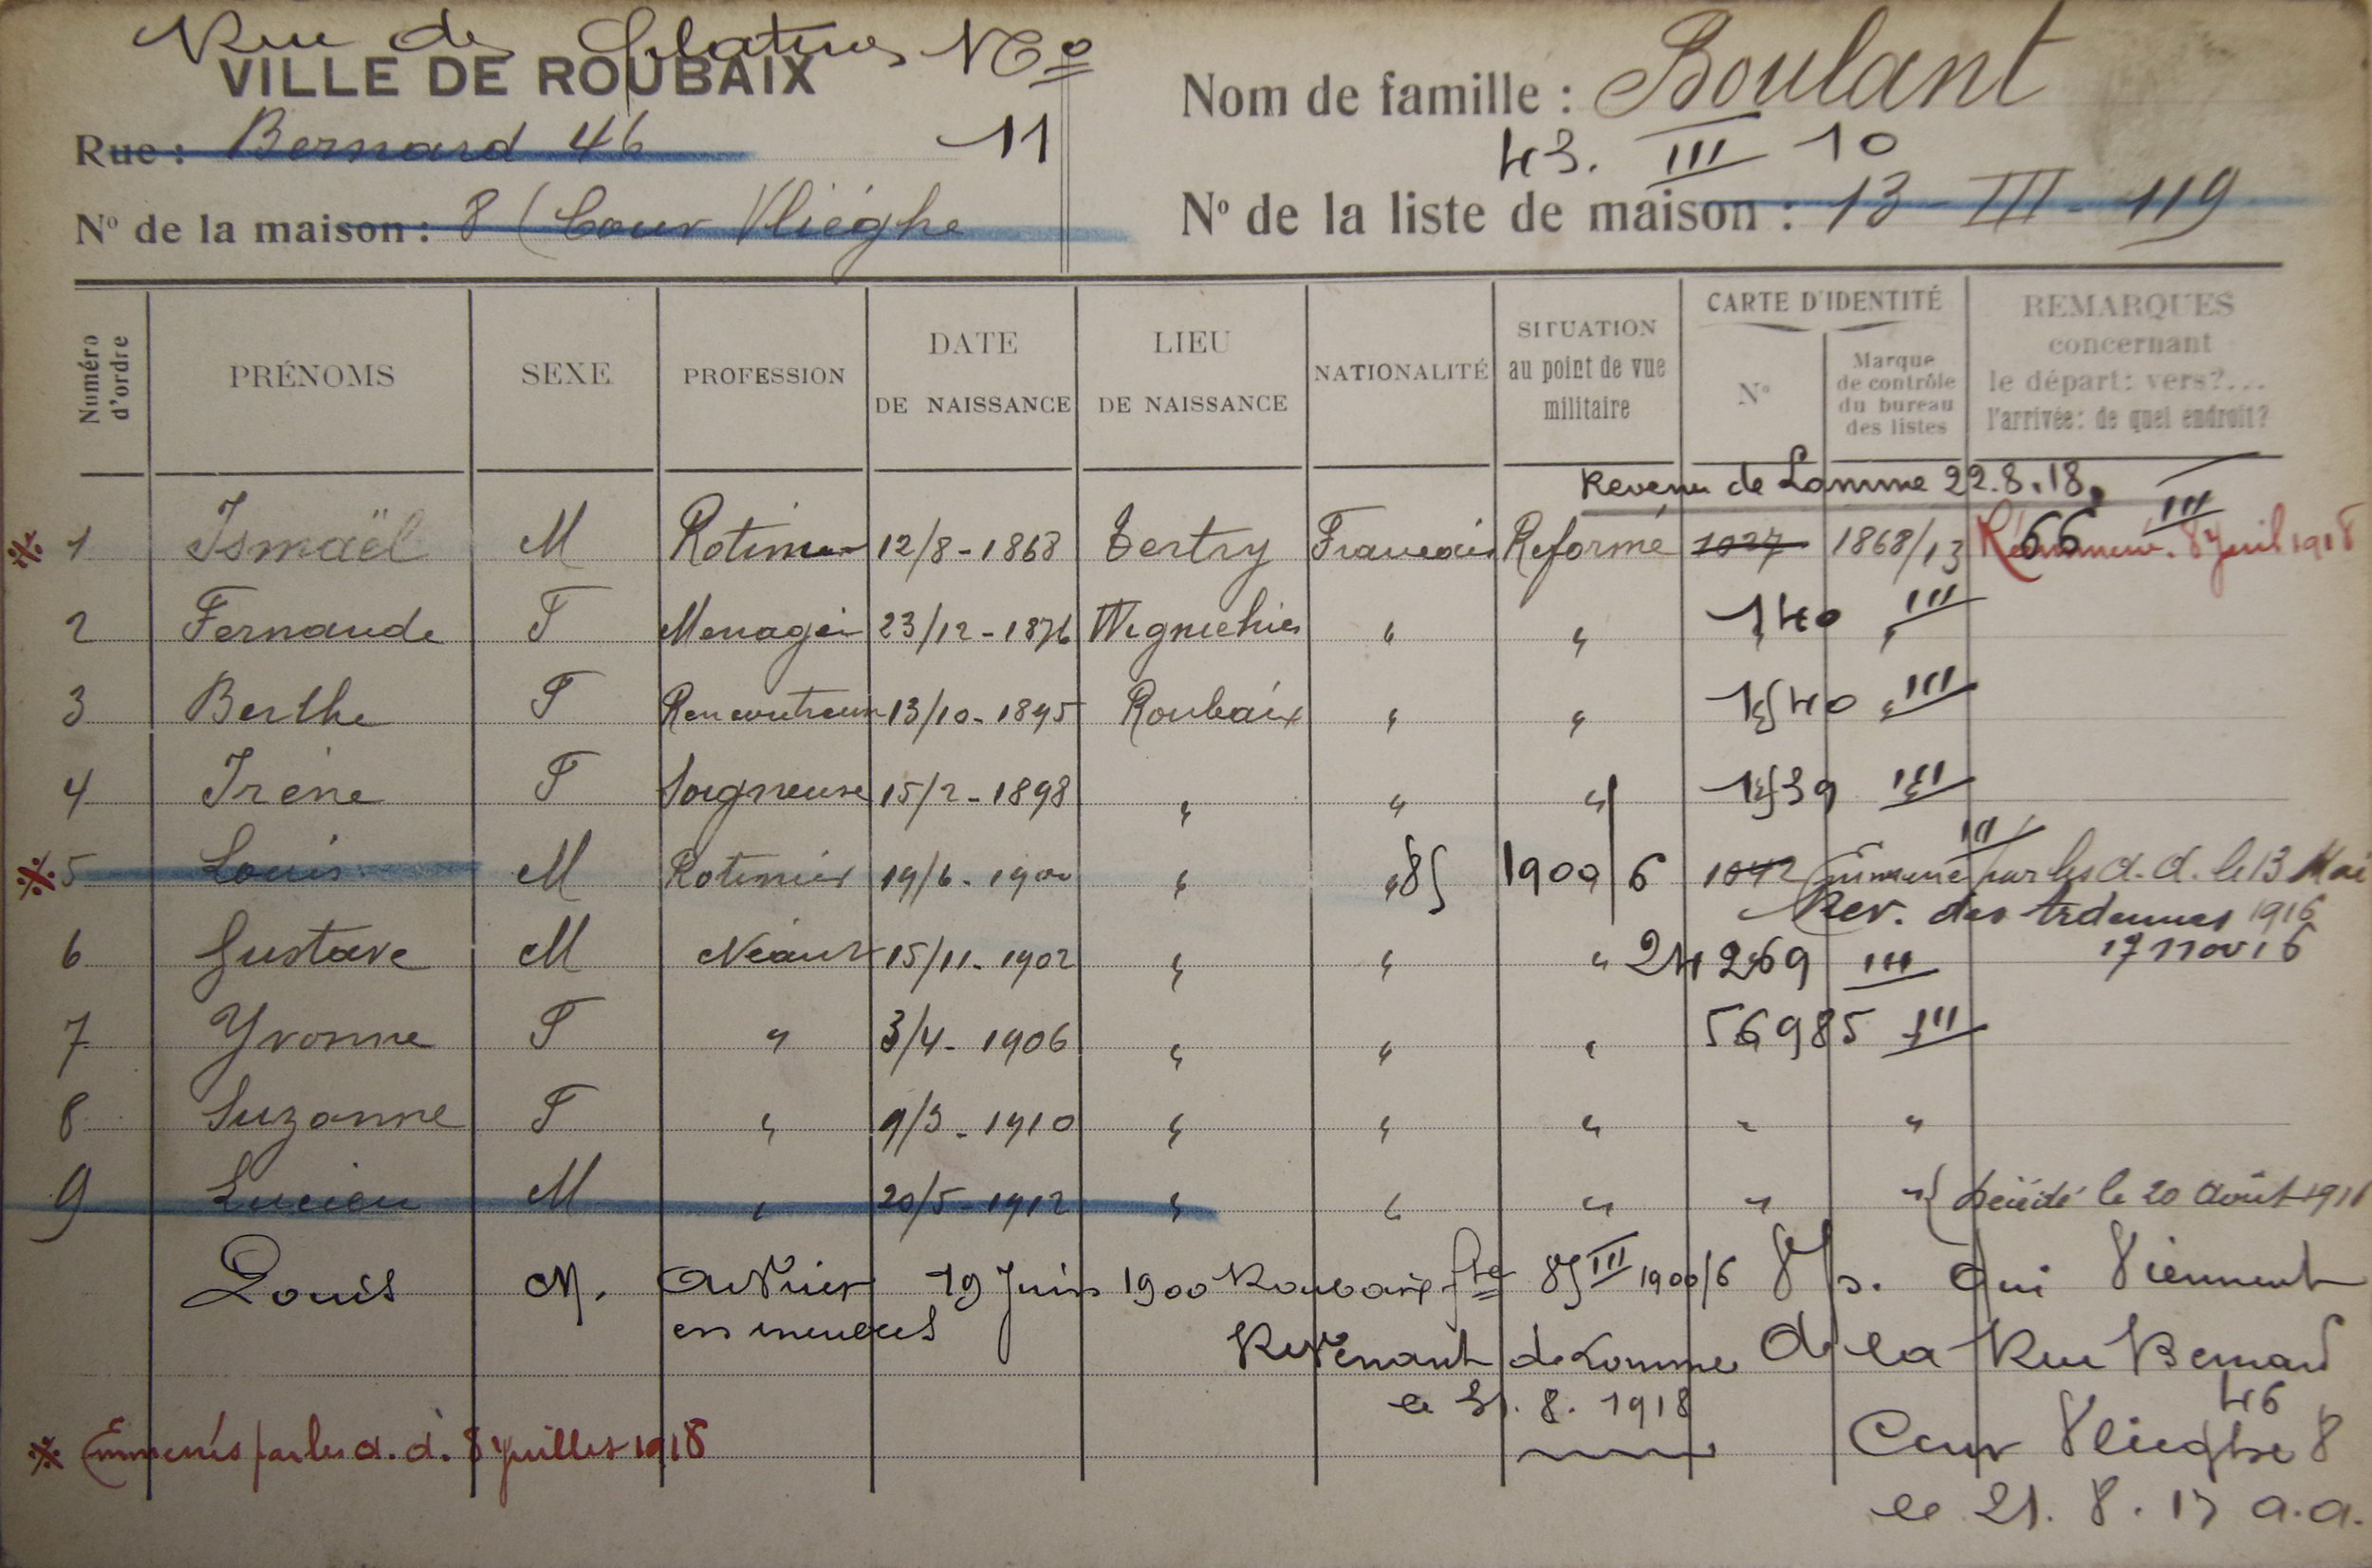 Rue des Filatures No
VILLE DE ROUBAIX
11
Rue : Bernard 46
No de la maison : 8 (Cour Vlieghe
Nom de famille : Boulant
43. III 10
No de la liste de maison : 13 - III - 119
Numéro d'ordre PRÉNOMS SEXE PROFESSION DATE DE NAISSANCE LIEU DE NAISSANCE NATIONALITÉ SITUATION au point de vue militaire CARTE D'IDENTITÉ No Marque de contrôle du bureau des listes REMARQUES concernant le départ: vers?... l'arrivée: de quel endroit?
Revenu de Lomme 22.8.18.
1 Ismaël M Rotinier 12/8-1868 Tertry Francais Reformé 1027 1868/13 66 III 8 Juil 1918
2 Fernande F Menagèr 23/12-1876 Wignehies " " 140 III
3 Berthe F 13/10-1895 Roubaix " " 1540 III
4 Irène F Soigneuse 15/2-1898 " " " 1539 III
5 Louis M Rotinier 19/6-1900 " " 85 1900/6 1042 III Emmené par les a.d. le 13 Mai 1916
Rev. des Ardennes 17 nov 16
6 Gustave M Néant 15/11-1902 " " " 24269 III
7 Yvonne F " 3/4-1906 " " " 56985 III
8 Suzanne F " 9/3-1910 " " " " "
9 Lucien M " 20/5-1912 " " " " " Décédé le 20 Août 1916
Louis M. Ouvrier 19 Juin 1900 Roubaix fse 85 III 1900/6 8 p. qui Viennent
en meubles Revenant de Lomme de la Rue Bernard
le 21.8.1918 46
※ Emmenés par les a.d. 8 Juillet 1918 Cour Vlieghe 8
le 21.8.17 a.a.